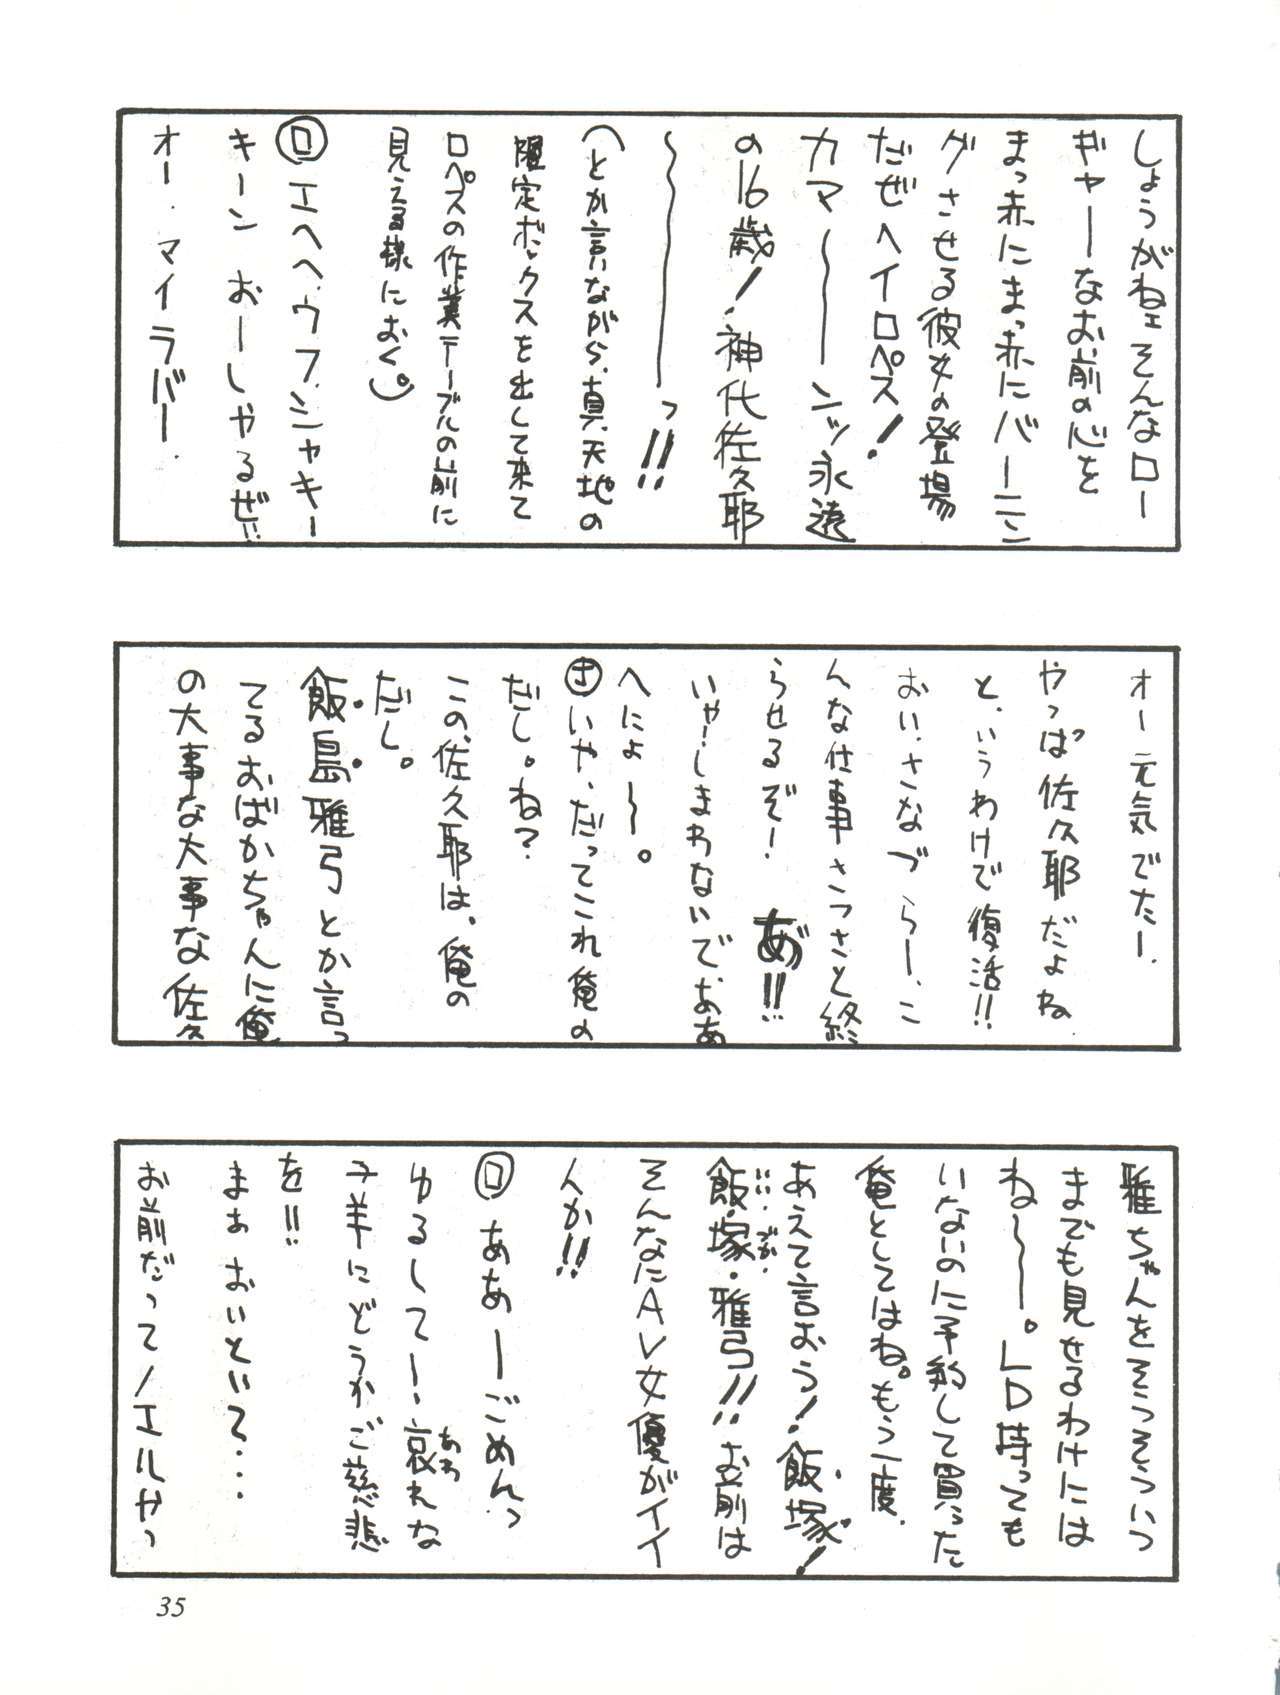 しょうがねェそんなロー
ギャーなお前の心を
まっ赤にまっ赤にバーニン
グさせる彼女の登場
だぜヘイロペス!
カマ〜〜ンッ永遠
の16歳!神代佐久耶
〜〜〜〜っ!!
(とか言いながら、真、天地の
限定ボックスを出して来て
ロペスの作業テーブルの前に
見える様におく。)
ロ エヘヘ、ウフ、シャキー
キーン おーしゃるぜ!!
オー・マイラバー.
オー元気でたー.
やっぱ佐久耶だよね
と、いうわけで復活!!
おい、さなづらー、こ
んな仕事さっさと終
らせるぞー あ゛!!
いやーしまわないでぉぁぁ
へにょ〜。
さ いや、だってこれ俺の
だし。ね?
この、佐久耶は、俺の
だし。
飯島雅弓とか言っ
てるおばかちゃんに俺
の大事な大事な佐久
雅ちゃんをそうそういつ
までも見せるわけには
ね〜〜。LD持っても
いないのに予約して買った
俺としてはね。もう一度.
あえて言おう!飯塚!
いい・づか・
飯・塚・雅弓!!お前は
そんなにAV女優がイイ
んか!!
ロ ああーごめんっ
ゆるしてー、哀れな
あわ
子羊にどうかご慈悲
を!!
まぁ おいといて・・・
お前だってノエルやっ
35